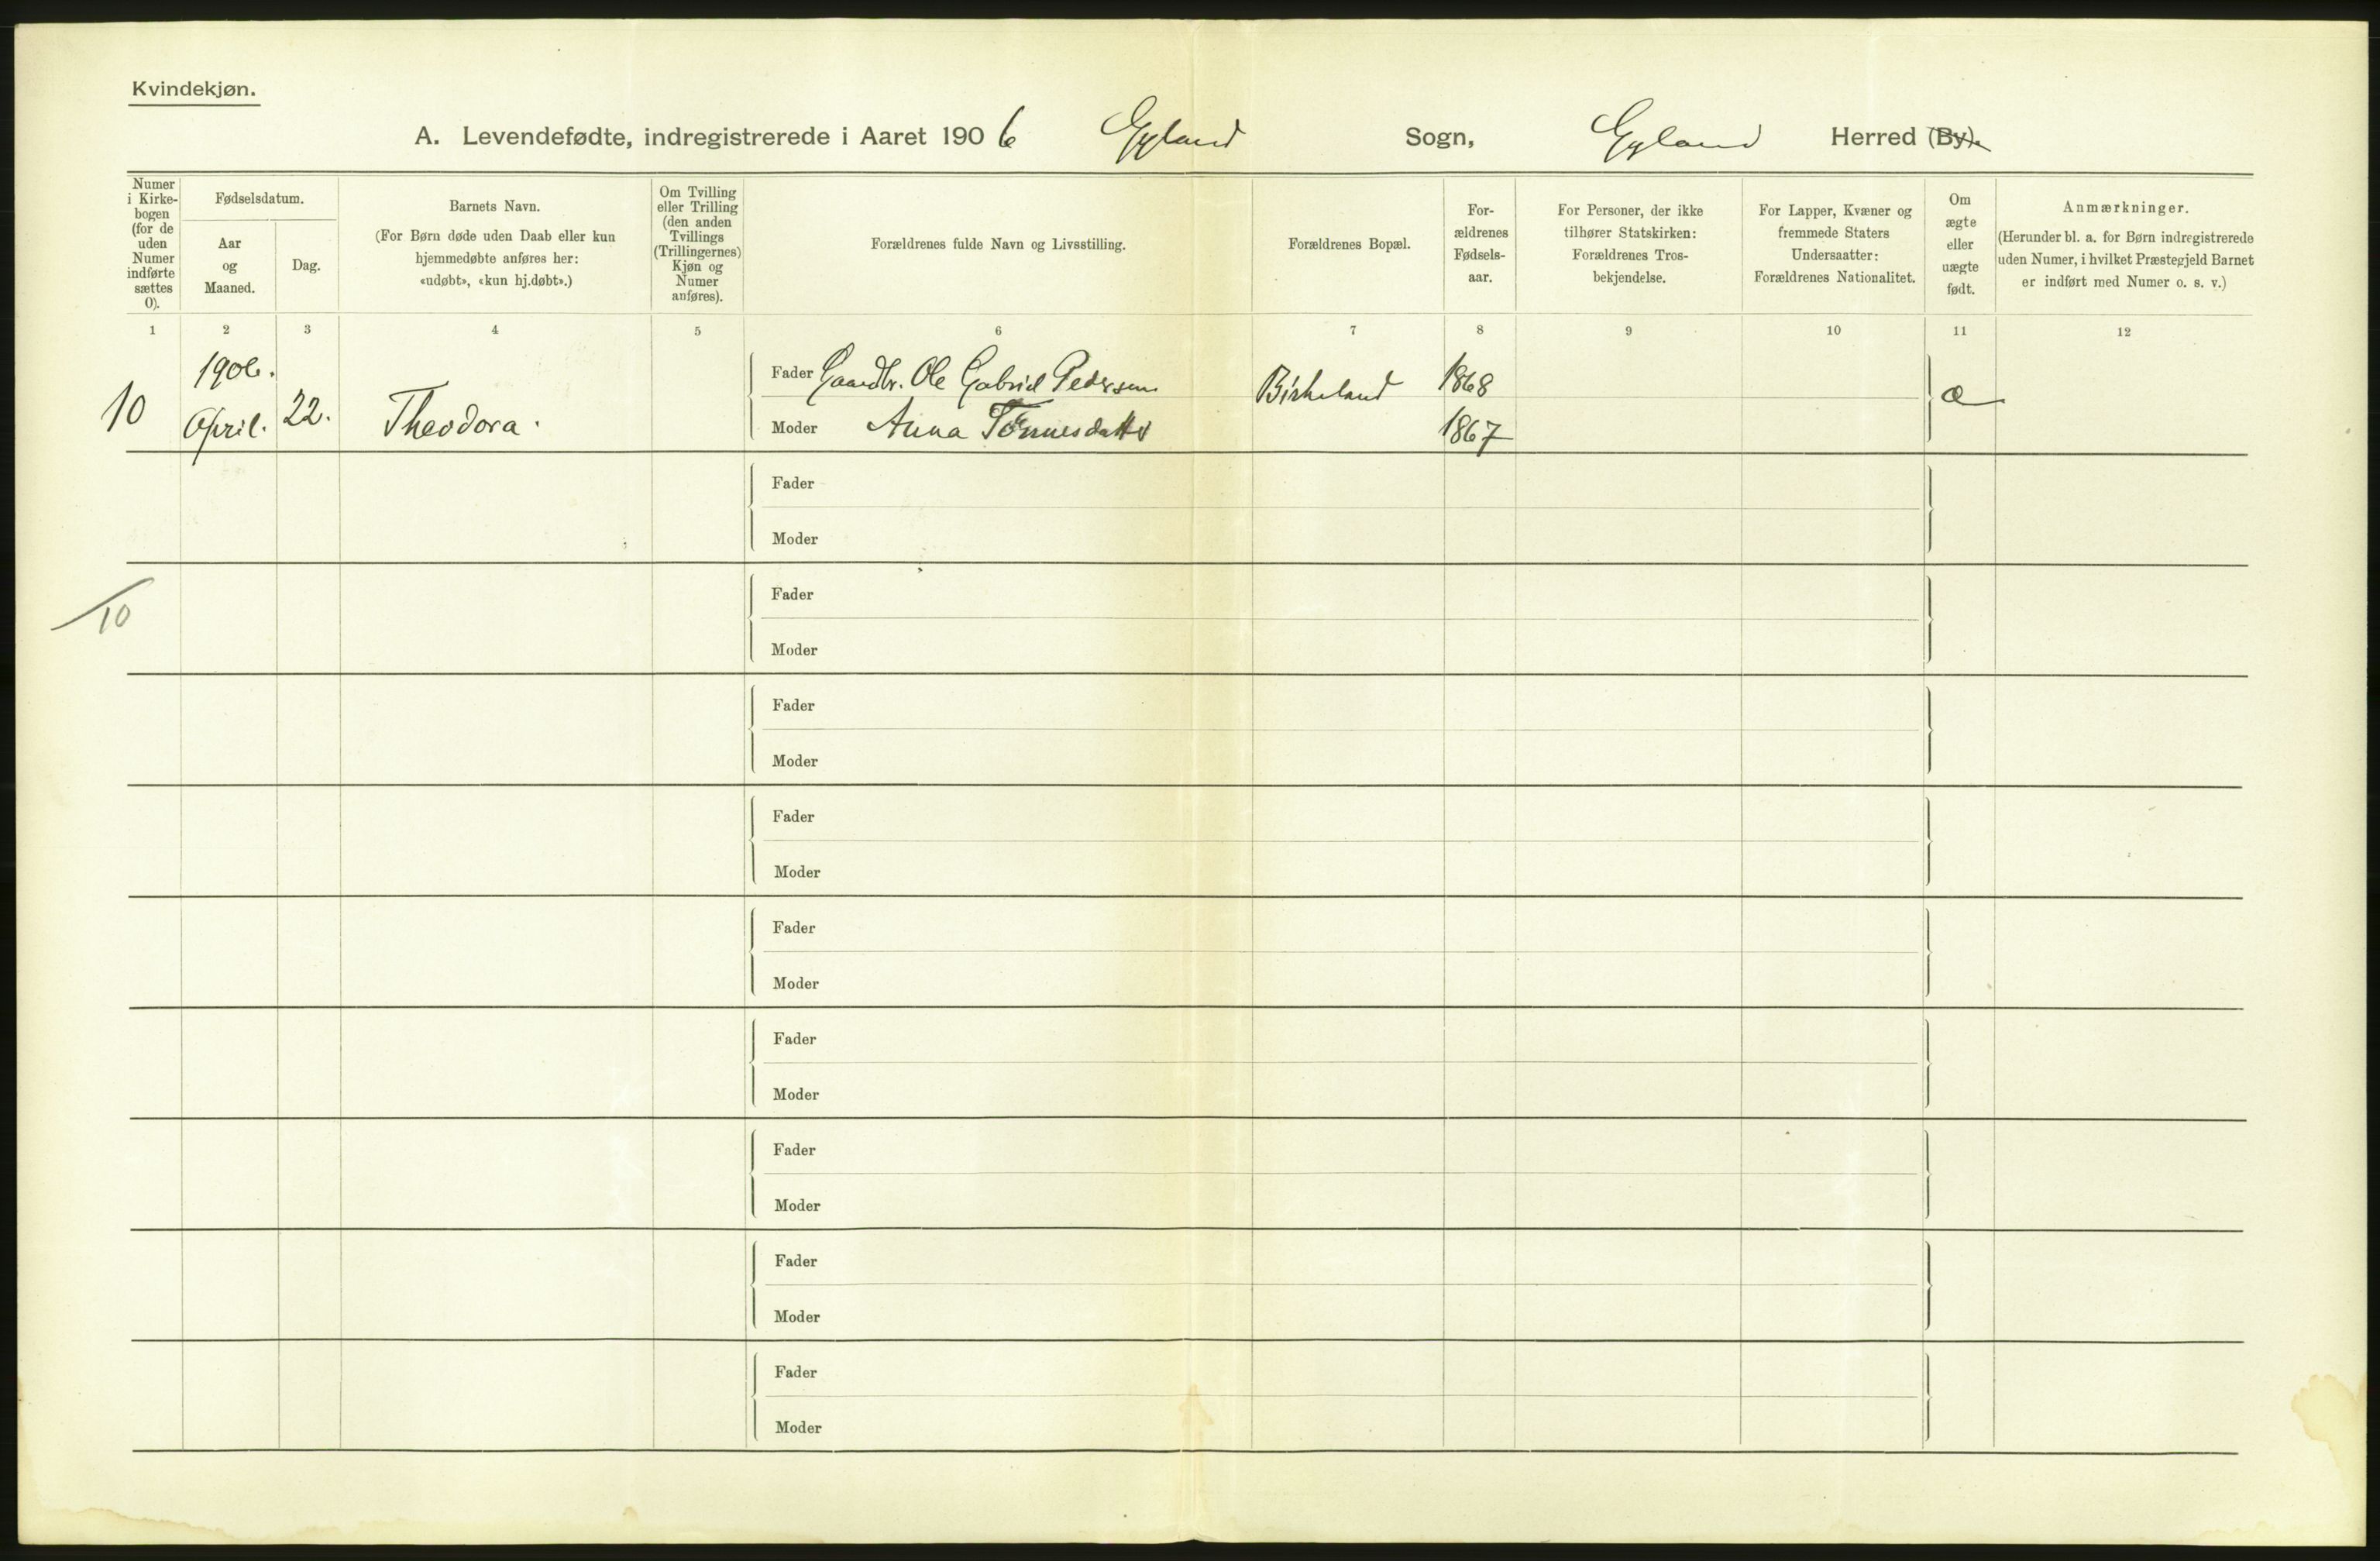 Kvindekjøn.
A. Levendefødte, indregistrerede i Aaret 1906 Gyland Sogn, Gyland Herred (By).
Numer
i Kirke-
bogen
(for de
uden
Numer
indførte
sættes
0).
Fødselsdatum.
Aar
og
Maaned.
Dag.
Barnets Navn.
(For Børn døde uden Daab eller kun
hjemmedøbte anføres her:
«udøbt», «kun hj.døbt».)
Om Tvilling
eller Trilling
(den anden
Tvillings
(Trillingernes)
Kjøn og
Numer
anføres).
Forældrenes fulde Navn og Livsstilling.
Forældrenes Bopæl.
For-
ældrenes
Fødsels-
aar.
For Personer, der ikke
tilhører Statskirken:
Forældrenes Tros-
bekjendelse.
For Lapper, Kvæner og
fremmede Staters
Undersaatter:
Forældrenes Nationalitet.
Om
ægte
eller
uægte
født.
Anmærkninger.
(Herunder bl. a. for Børn indregistrerede
uden Numer, i hvilket Præstegjeld Barnet
er indført med Numer o. s. v.)
1 2 3 4 5 6 7 8 9 10 11 12
1906.
10 April. 22. Theodora.
Fader Gaardbr. Ole Gabriel Pedersen Birkeland 1868 æ
Moder Anna Tønnesdatter 1867
Fader
Moder
10
Fader
Moder
Fader
Moder
Fader
Moder
Fader
Moder
Fader
Moder
Fader
Moder
Fader
Moder
Fader
Moder